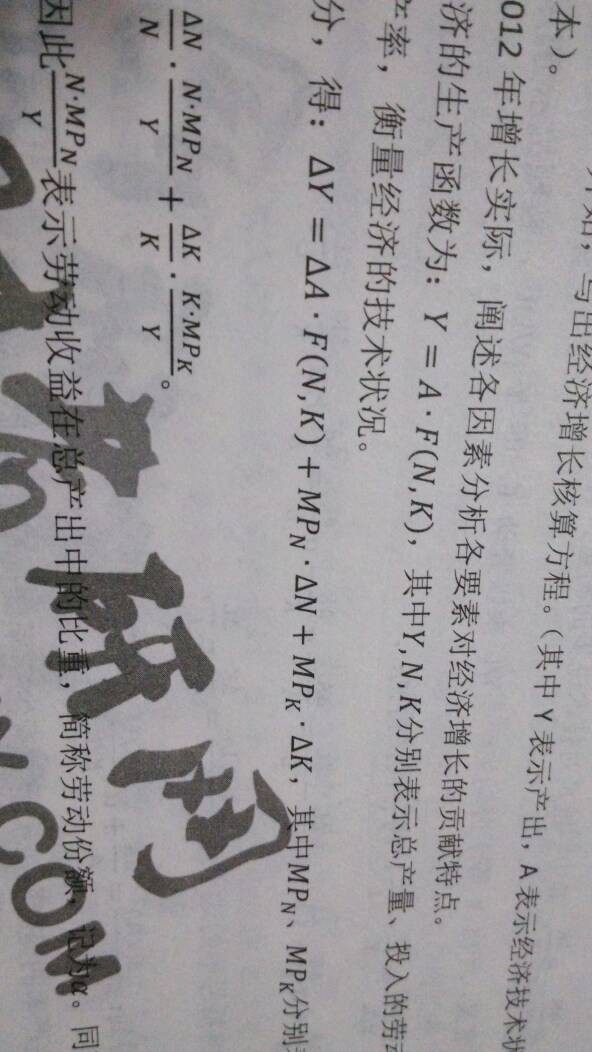 本）。
开始，写出经济增长核算方程。（其中 Y 表示产出，A 表示经济技术状
012 年增长实际，阐述各因素分析各要素对经济增长的贡献特点。
济的生产函数为：Y = A · F(N, K)，其中Y, N, K分别表示总产量、投入的劳动
率，衡量经济的技术状况。
分，得：ΔY = ΔA · F(N, K) + MP_N · ΔN + MP_K · ΔK，其中MP_N、MP_K分别
ΔN/N · N·MP_N/Y + ΔK/K · K·MP_K/Y。
因此 N·MP_N/Y 表示劳动收益在总产出中的比重，简称劳动份额，记为α。同
研网
.COM